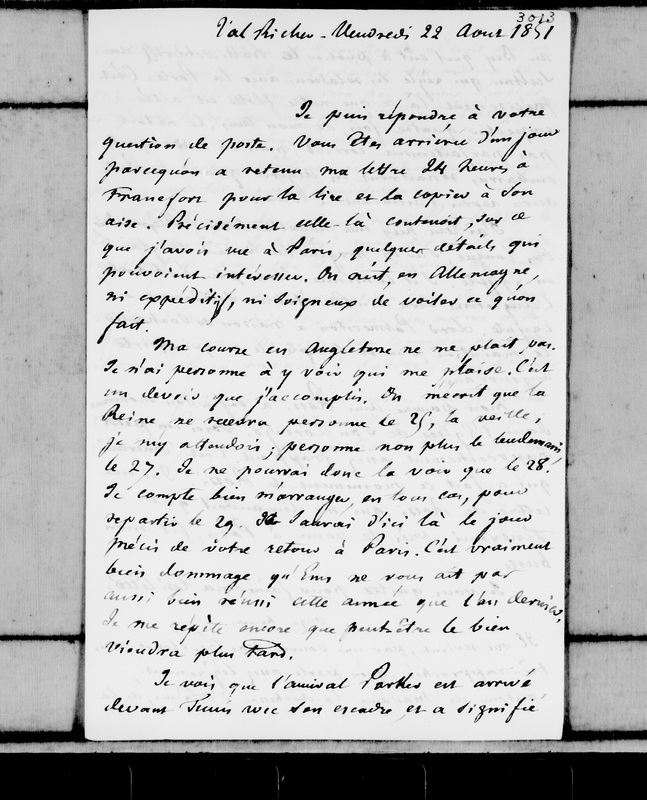 3023
Val Richer - Vendredi 22 Aout 1851
Je puis répondre à votre
question de poste. Vous êtes arriérée d'un jour
parcequ'on a retenu ma lettre 24 heures à
Francfort pour la lire et la copier à son
aise. Précisément celle là contenoit, sur ce
que j'avois vu à Paris, quelques détails qui
pouvoient intéresser. On n'est, en Allemagne,
ni expéditif, ni soigneux de voiler ce qu'on
fait.
Ma course en Angleterre ne me plait pas.
Je n'ai personne à y voir qui me plaise. C'est
un devoir que j'accomplis. On m'écrit que la
Reine ne recevra personne le 25, la veille,
je m'y attendois; personne non plus le lendemain
le 27. Je ne pourrai donc la voir que le 28.
Je compte bien m'arranger, en tous cas, pour
repartir le 29. Je saurai d'ici là le jour
précis de votre retour à Paris. C'est vraiment
bien dommage qu'Ems ne vous ait pas
aussi bien réussi cette année que l'an dernier.
Je me répète encore que peut-être le bien
viendra plus tard.
Je vois que l'amiral Parker est arrivé
devant Tunis avec son escadre, et a signifié